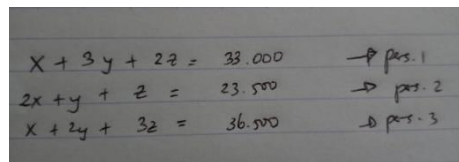 x + 3y + 2z = 33.000 → pers.1
2x + y + z = 23.500 → pers.2
x + 2y + 3z = 36.500 → pers.3